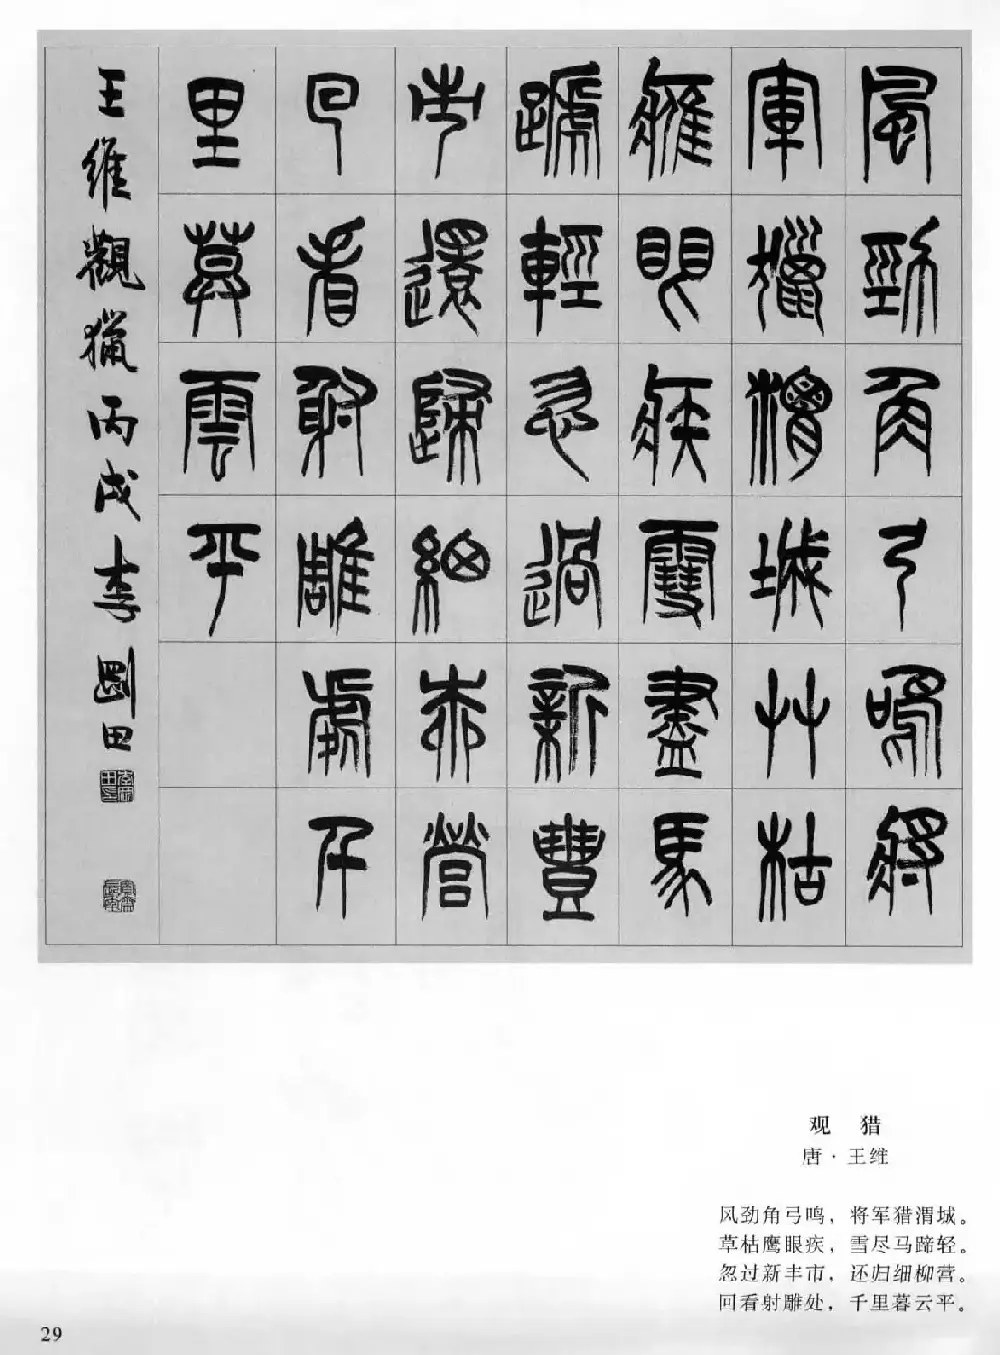 風勁角弓鳴將
軍獵渭城艸枯
雁眼疾雪盡馬
蹏輕忽過新豐
市還歸細桺營
回看射雕處千
里莫雲平
王維觀獵丙戌李剛田
观 猎
唐·王维
风劲角弓鸣，将军猎渭城。
草枯鹰眼疾，雪尽马蹄轻。
忽过新丰市，还归细柳营。
回看射雕处，千里暮云平。
29